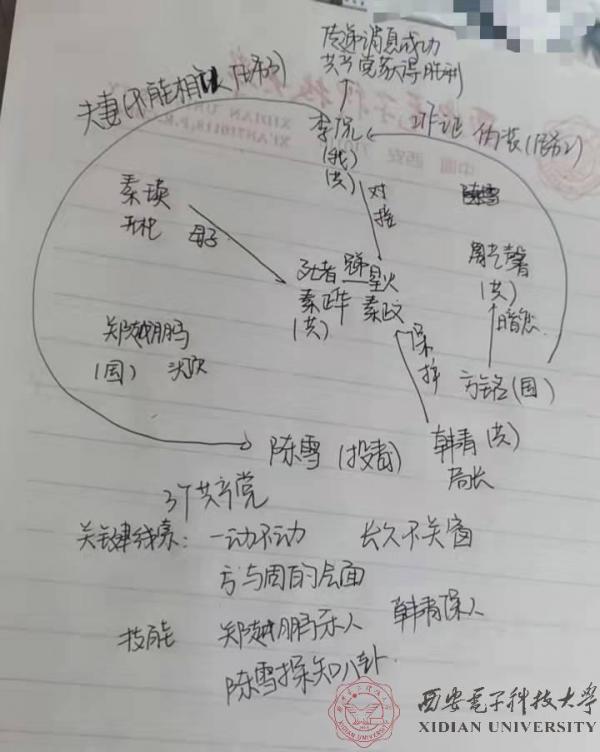 传递消息成功
共产党获得胜利
夫妻(不能相认
李悦
(我)
(共)
工作证 伪装
对接
陈雪
秦
母子
死者 星火
秦晔 秦政
(共)
周艺馨
(共)
暗恋
郑越鹏
(国)
保护
方铭(国)
陈雪 (投毒)
韩青(共)
局长
3个共产党
关键线索: 一动不动 长久不关窗
方与周的层面
技能 郑越鹏杀人 韩青保人
陈雪探知八卦.
西安电子科技大学
XIDIAN UNIVERSITY